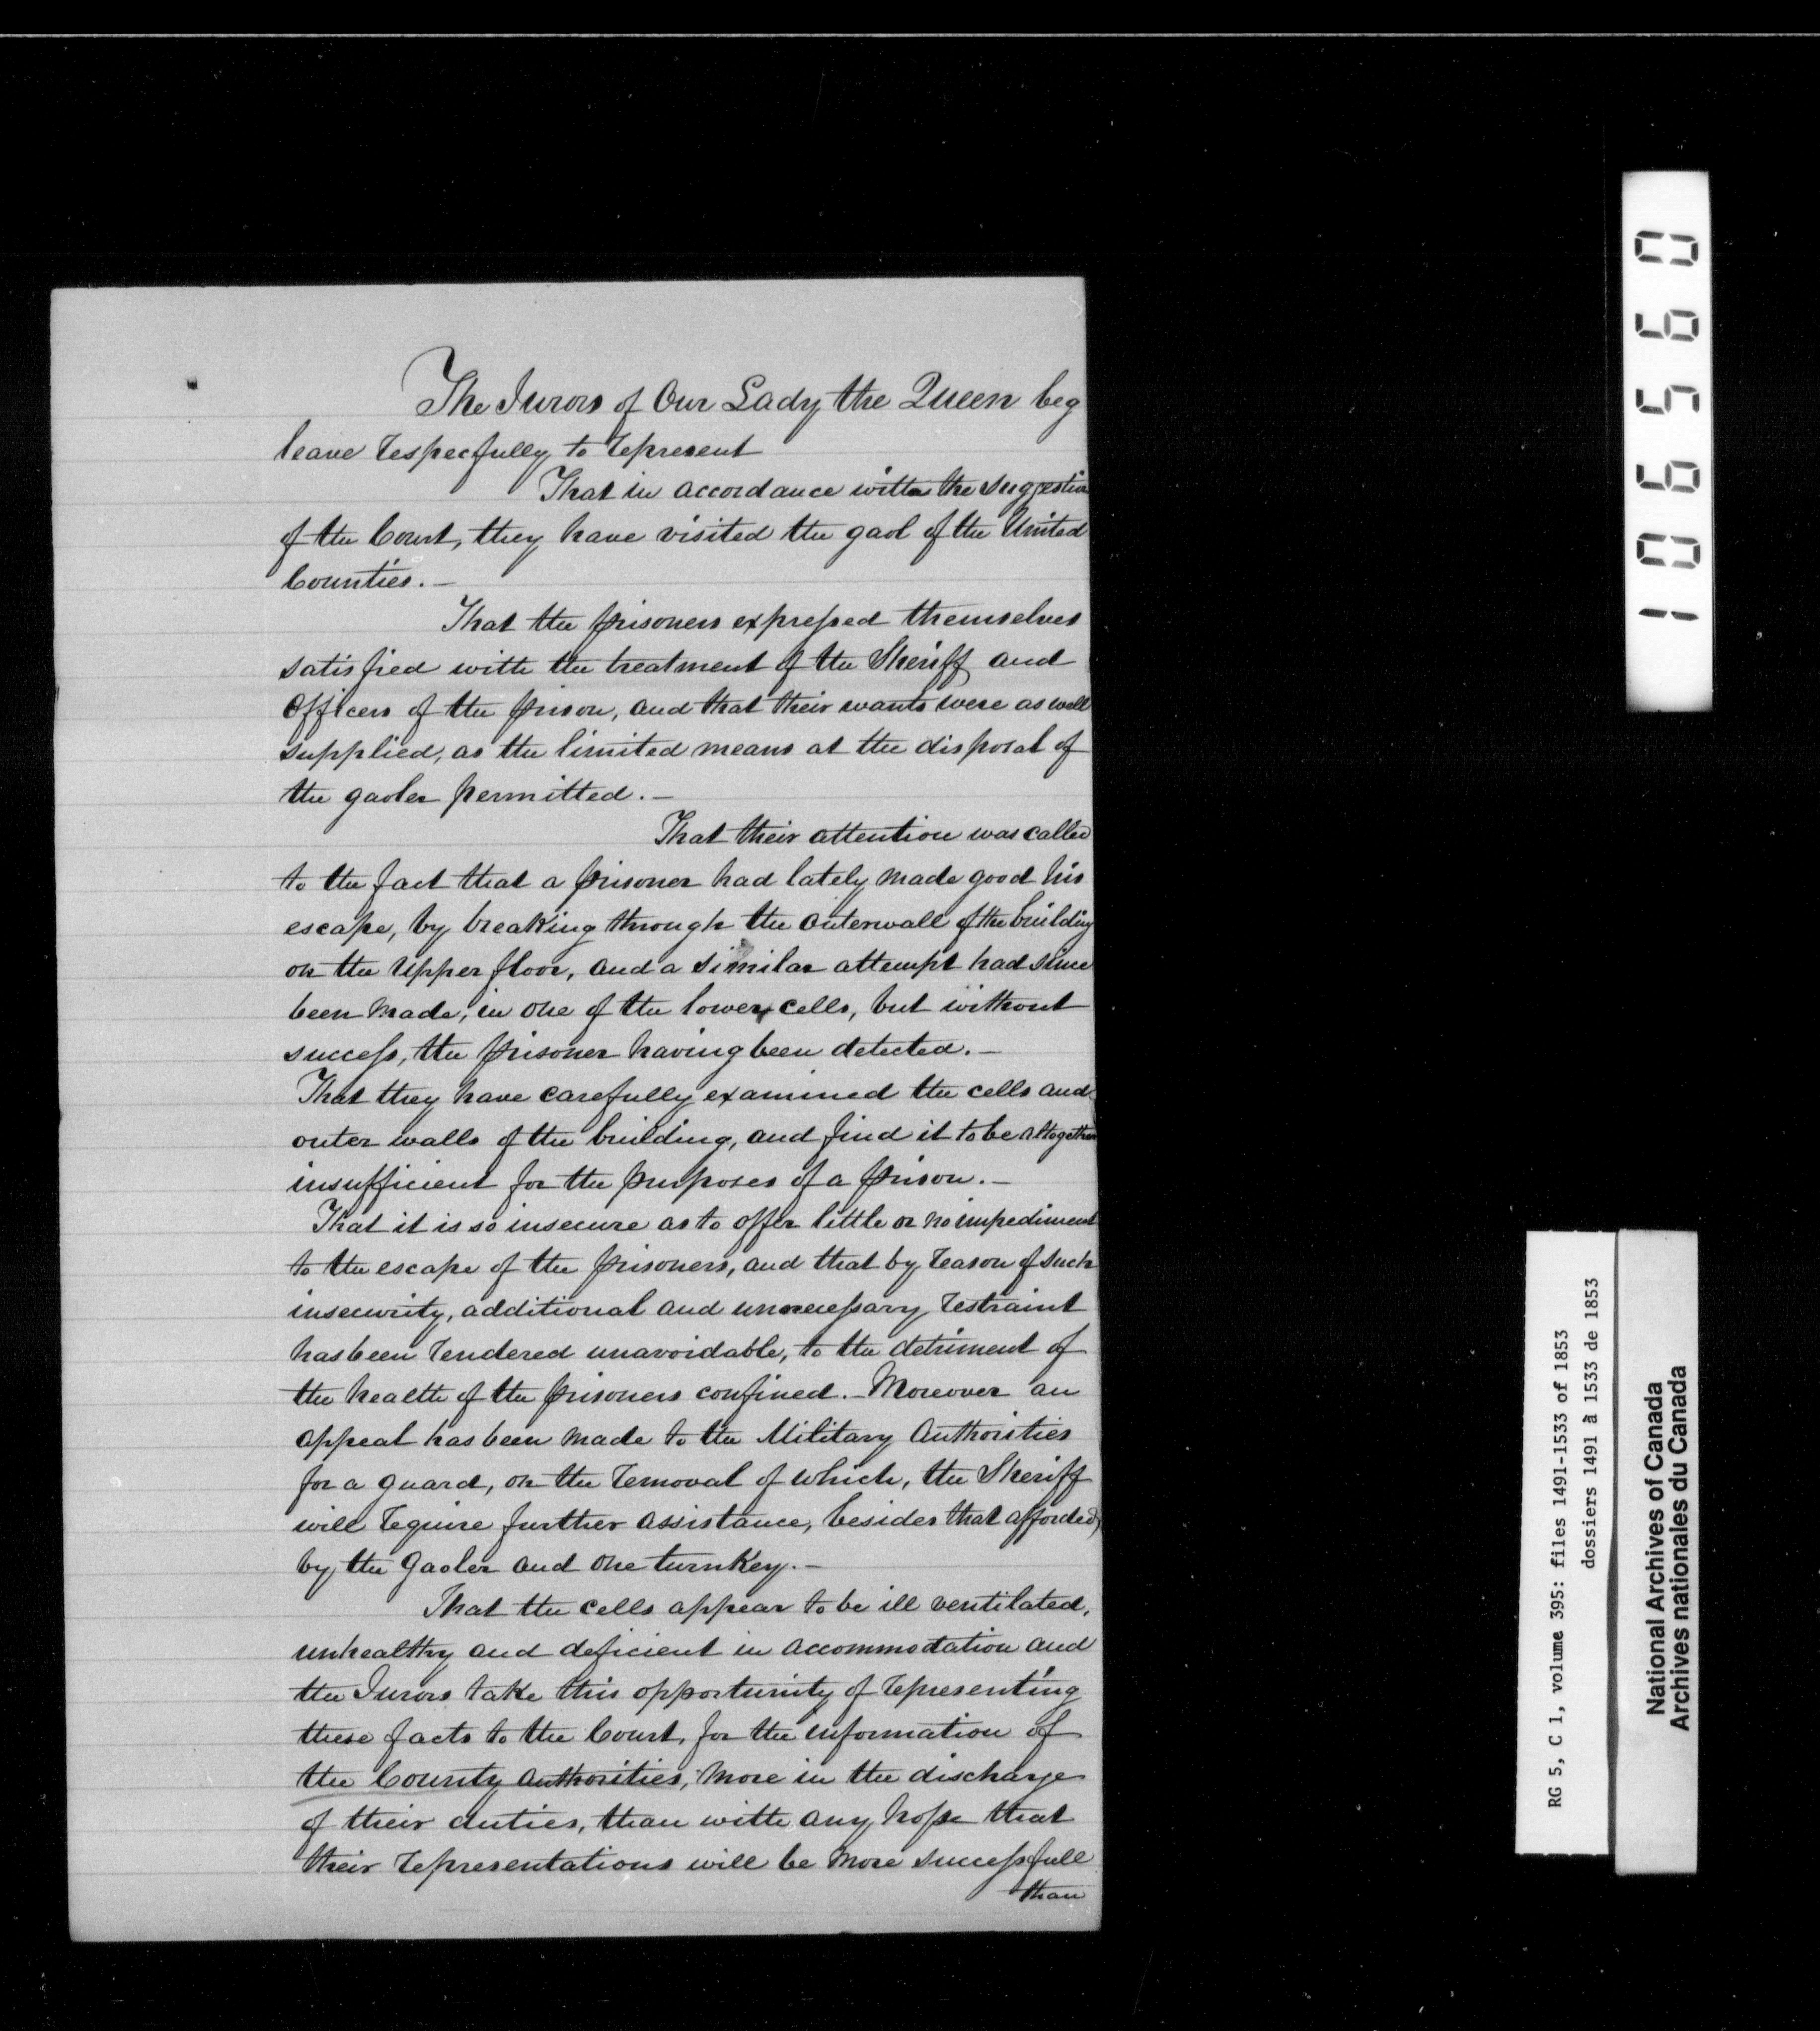 The Jurors of Our Lady the Queen beg
leave respecfully to represent
That in accordance with the suggestion
of the Court, they have visited the gaol of the United
Counties.—
That the prisoners expressed themselves
satisfied with the treatment of the Sheriff and
Officers of the prison, and that their wants were as well
supplied, as the limited means at the disposal of
the gaoler permitted.—
That their attention was called
to the fact that a prisoner had lately made good his
escape, by breaking through the outerwall of the building
on the upper floor, and a similar attempt had since
been made, in one of the lower cells, but without
success, the prisoner having been detected.—
That they have carefully examined the cells and
outer walls of the building, and find it to be altogether
insufficient for the purposes of a prison.—
That it is so insecure as to offer little or no impediment
to the escape of the prisoners, and that by reason of such
insecurity, additional and unnecessary restraint
has been rendered unavoidable, to the detriment of
the health of the prisoners confined.— Moreover an
appeal has been made to the Military Authorities
for a guard, on the removal of which, the Sheriff
will require further assistance, besides that afforded
by the Gaoler and one turnkey.—
That the cells appear to be ill ventilated,
unhealthy and deficient in accommodation and
the Jurors take this opportunity of representing
these facts to the Court, for the information of
the County Authorities, more in the discharge
of their duties, than with any hope that
their representations will be more successfull
than
1065560
RG 5, C 1, volume 395: files 1491-1533 of 1853
dossiers 1491 à 1533 de 1853
National Archives of Canada
Archives nationales du Canada